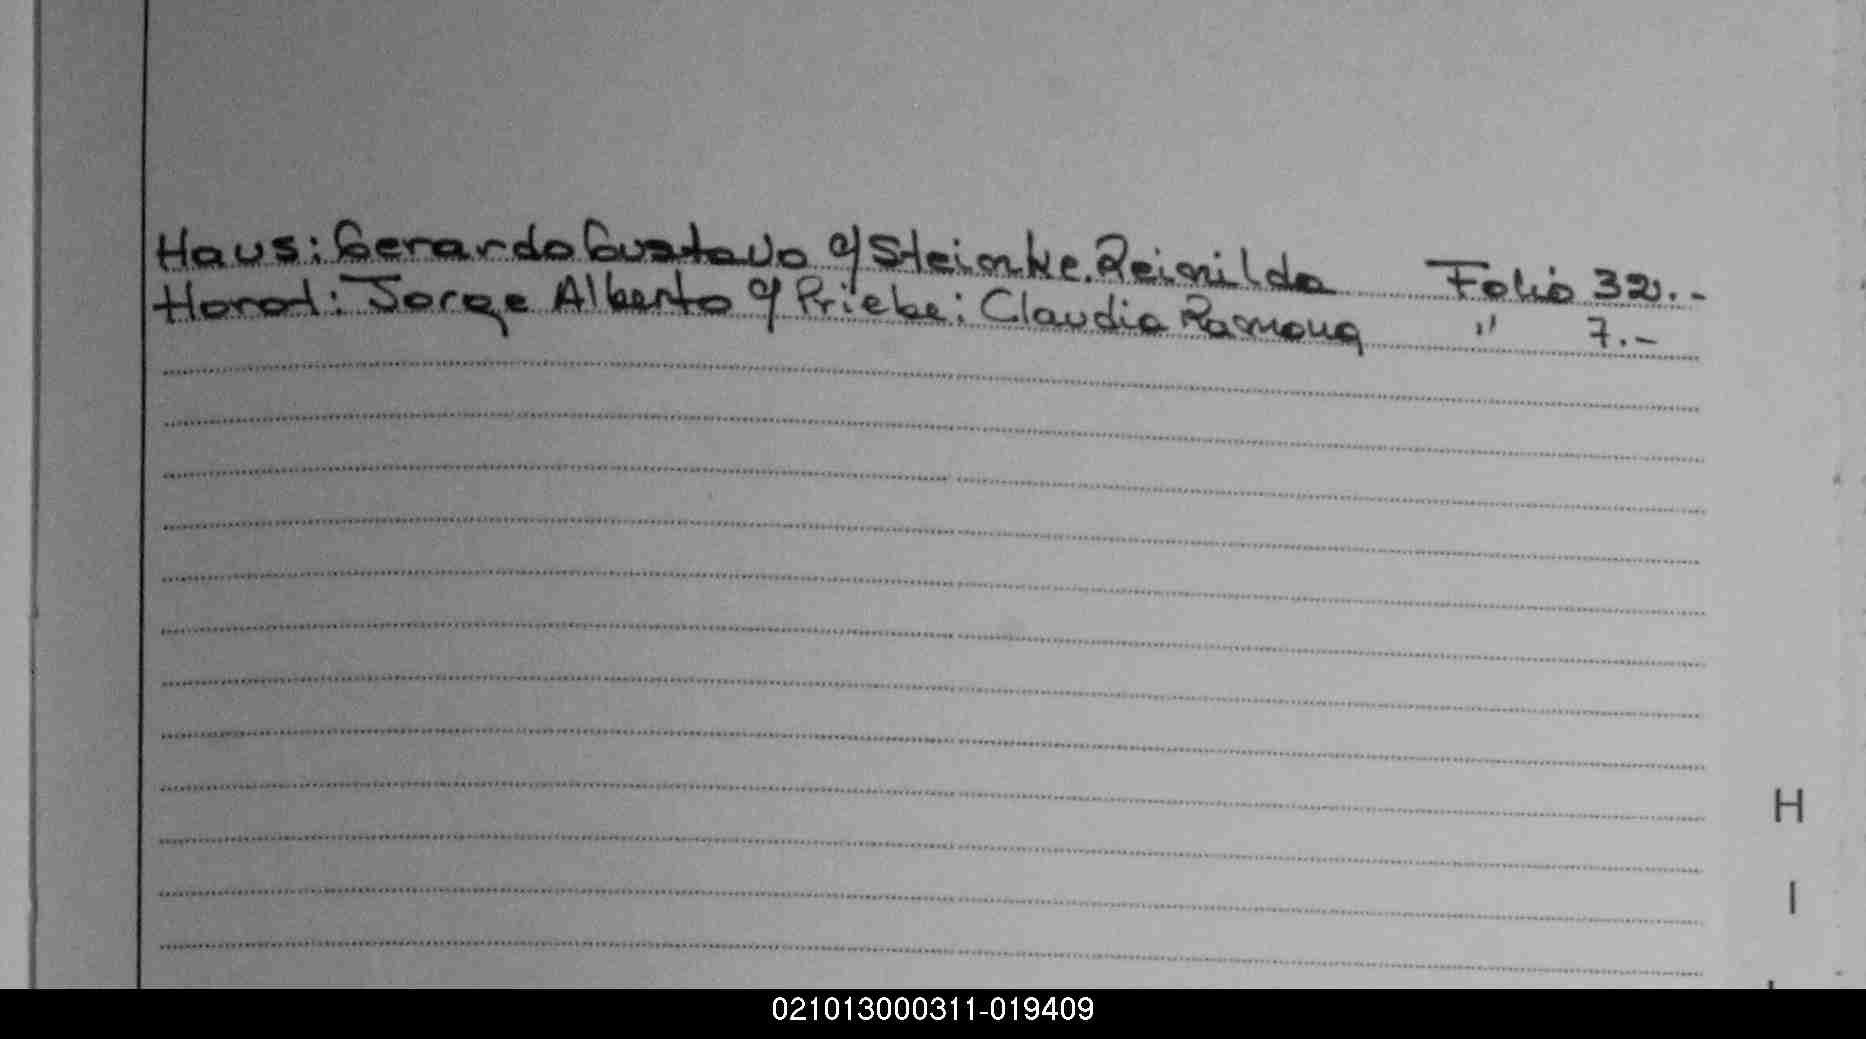 Haus: Gerardo Gustavo c/ Steinke. Reinilda Folio 32.-
Horod: Jorge Alberto c/ Priebe: Claudia Ramona " 7.-
H
I
021013000311-019409